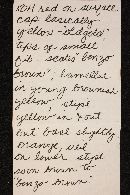 not red on surface
cap basically
yellow "oldgold"
tips of small
f.b. scales "benzo
brown"; lamellae
in young brownish
yellow, stipe
yellow in & out
but base slightly
orange, red
on lower stipe
soon brown to
"benzo brown"